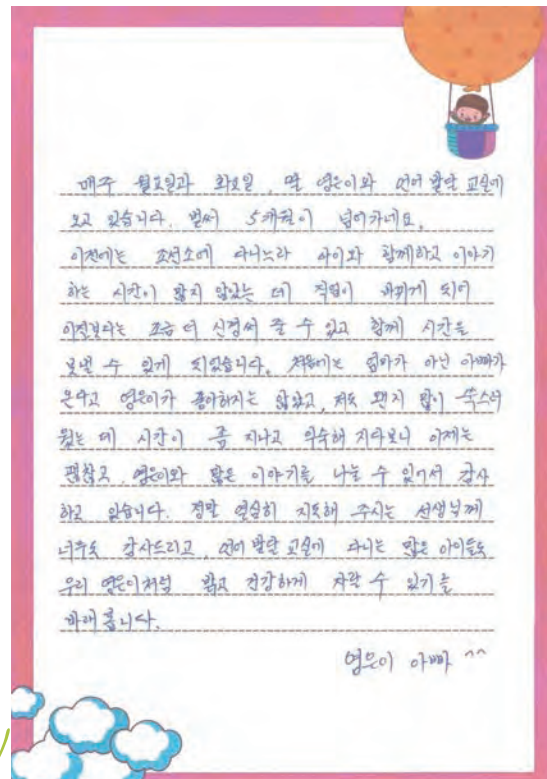 매주 월요일과 화요일, 딸 영은이와 언어 발달 교실에
오고 있습니다. 벌써 5개월이 넘어가네요.
이전에는 조선소에 다니느라 아이와 함께하고 이야기
하는 시간이 많지 않았는 데 직업이 바뀌게 되어
이전보다는 조금 더 신경써 줄 수 있고 함께 시간을
보낼 수 있게 되었습니다. 처음에는 엄마가 아닌 아빠가
온다고 영은이가 좋아하지는 않았고, 저도 왠지 많이 쑥스러
웠는 데 시간이 좀 지나고 익숙해 지다보니 이제는
괜찮고 영은이와 많은 이야기를 나눌 수 있어서 감사
하고 있습니다. 정말 열심히 지도해 주시는 선생님께
너무도 감사드리고, 언어 발달 교실에 다니는 많은 아이들도
우리 영은이처럼 밝고 건강하게 자랄 수 있기를
바래 봅니다.
영은이 아빠 ^^